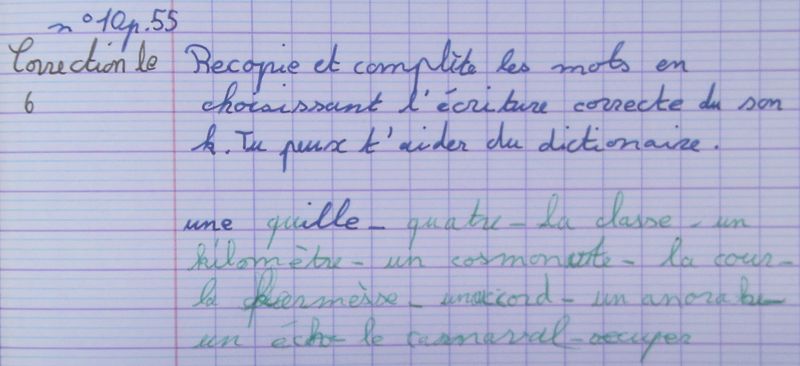 n°10 p. 55
Correction le 6
Recopie et complète les mots en
choisissant l'écriture correcte du son
k. Tu peux t'aider du dictionaire.
une quille - quatre - la classe - un
kilomètre - un cosmonaute - la cour -
la kermèsse - un accord - un anorak -
un écho - le carnaval - occuper